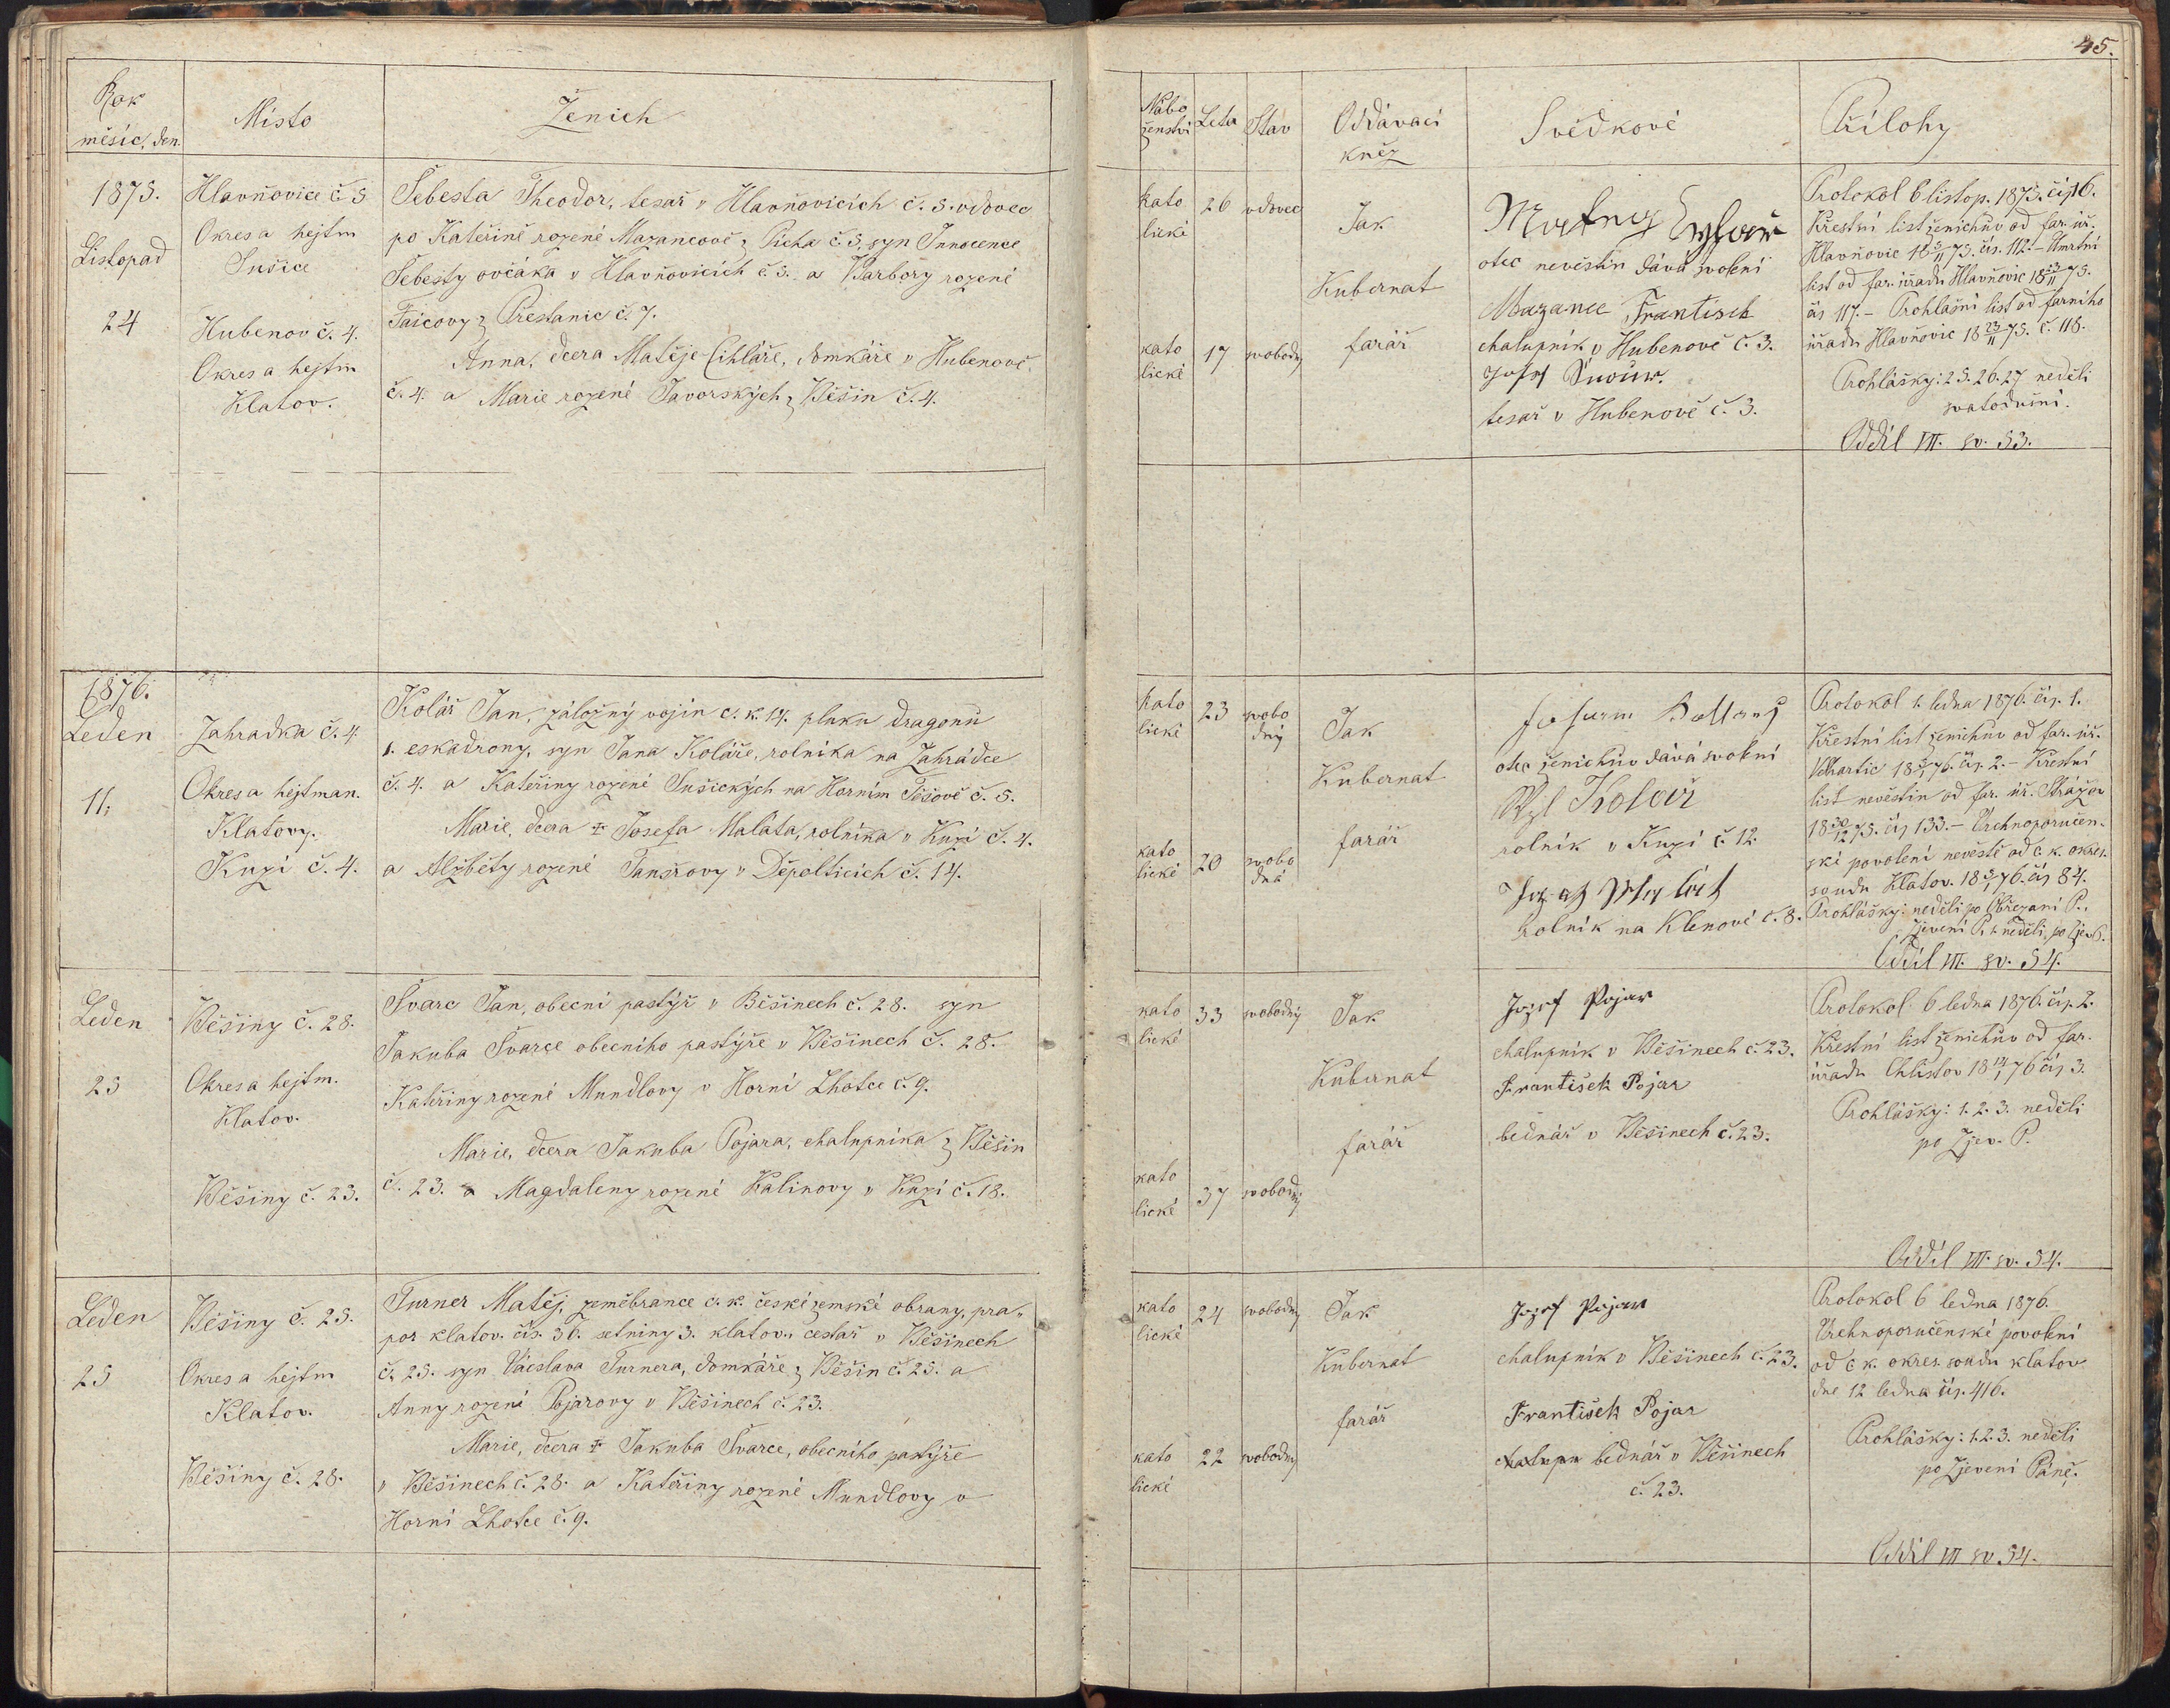 45.
Rok
měsíc, den.
Místo
Ženich
Nábo
ženství
Leta
Stav
Oddávací
kněz
Svědkové
Přílohy
1875.
Listopad
24
Hlavňovice č. 5
Okres a hejtm
Sušice
Hubenov č. 4.
Okres a hejtm
Klatov.
Šebesta Theodor, tesař v Hlavňovicích č. 5. vdovec
po Kateřině rozené Mazancově z Picha č. 5, syn Innocence
Šebesty ovčáka v Hlavňovicích č 5. a Barbory rozené
Faicovy z Přestanic č. 7.
Anna, dcera Matěje Cihláře, domkáře v Hubenově
č. 4. a Marie rozené Javorských z Běšin č. 4.
kato
lické
26
vdovec
kato
lické
17
svobodn
Jak
Kubernat
farář
otec nevěstin dává svolení
Mazanec Frantisek
chalupník v Hubenově č. 3.
tesař v Hubenově č. 3.
Protokol 6 listop. 1875. čís 16.
Křestní list ženichův od far. úř.
Hlavňovic 18 5/11 75. čís. 112. – Úmrtní
list od far. úřadu Hlavňovic 18 23/11 75.
čís 117. – Prohlašní list od farního
úřadu Hlavňovic 18 23/11 75. č. 118.
Prohlášky: 25. 26. 27 neděli
svatodušní.
Oddíl VII. sv. 53.
1876.
Leden
11.
Zahradka č. 4
Okres a hejtman.
Klatovy.
Kuzí č. 4.
Kolář Jan, záložný vojín c. k. 14. pluku dragonů
1. eskadrony, syn Jana Koláře, rolníka na Zahrádce
č. 4. a Kateřiny rozené Sušických na Horním Těšově č. 5.
Marie, dcera + Josefa Maláta, rolníka v Kuzí č. 4.
a Alžběty rozené Tanšrovy v Děpolticích č. 14.
kato
lické
23
svobo
dný
kato
lické
20
svobo
dná
Jak
Kubernat
farář
otec ženichův dává svolení
rolník v Kuzí č 12.
rolník na Klenové č. 8.
Protokol 1. ledna 1876. čís. 1.
Křestní list ženichův od far. úř.
Velhartic 18 5/1 76. čís. 2. – Křestní
list nevěstin od far. úř. Strážov
18 30/12 75. čís 133. – Vrchnoporučen-
ské povolení nevěstě od c. k. okres.
soudu Klatov. 18 5/1 76. čís 84.
Prohlášky: neděli po Obřezaní P.,
Zjevení P. 1. neděli po Zjev P.
Oddíl VII. sv. 54.
Leden
25
Běšiny č. 28.
Okres a hejtm.
Klatov.
Běšiny č. 23.
Švarc Jan, obecní pastýř v Běšinech č. 28. syn
Jakuba Švarce obecního pastýře v Běšinech č. 28.
Kateřiny rozené Mundlovy v Horní Lhotce č. 9.
Marie, dcera Jakuba Pojara, chalupníka z Běšin
č. 23. a Magdaleny rozené Kalinovy v Kuzí č. 18.
kato
lické
33
svobodný
kato
lické
37
svobodn
Jak
Kubernat
farář
Jozef Pojar
chalupník v Běšinech č. 23.
František Pojar
bednář v Běšinech č. 23.
Protokol 6 ledna 1876. čís. 2.
Křestní list ženichův od far.
úřadu Chlistov 18 14/1 76 čís 3.
Prohlášky: 1. 2. 3. neděli
po Zjev. P.
Oddíl VII. sv. 54.
Leden
25
Běšiny č. 25.
Okres a hejtm
Klatov.
Běšiny č. 28.
Turner Matěj, zeměbrance c. k. české zemské obrany, pra„
por klatov. čís. 36. setniny 3. klatov., cestář v Běšinech
č. 25. syn Václava Turnera, domkáře z Běšin č. 25. a
Anny rozené Pojarovy v Běšinech č. 23.
Marie, dcera + Jakuba Švarce, obecního pastýře
v Běšinech č. 28. a Kateřiny rozené Mundlovy v
Horní Lhotce č. 9.
kato
lické
24
svobodn
kato
lické
22
svobodn
Jak
Kubernat
farář
Jozef Pojar
chalupník v Běšinech č. 23.
František Pojar
chalupn bednář v Běšinech
č. 23.
Protokol 6 ledna 1876.
Vrchnoporučenské povolení
od c k. okres. soudu klatov
dne 12 ledna čís. 416.
Prohlášky: 1. 2. 3. neděli
po Zjevení Páně.
Oddíl VII sv. 54.